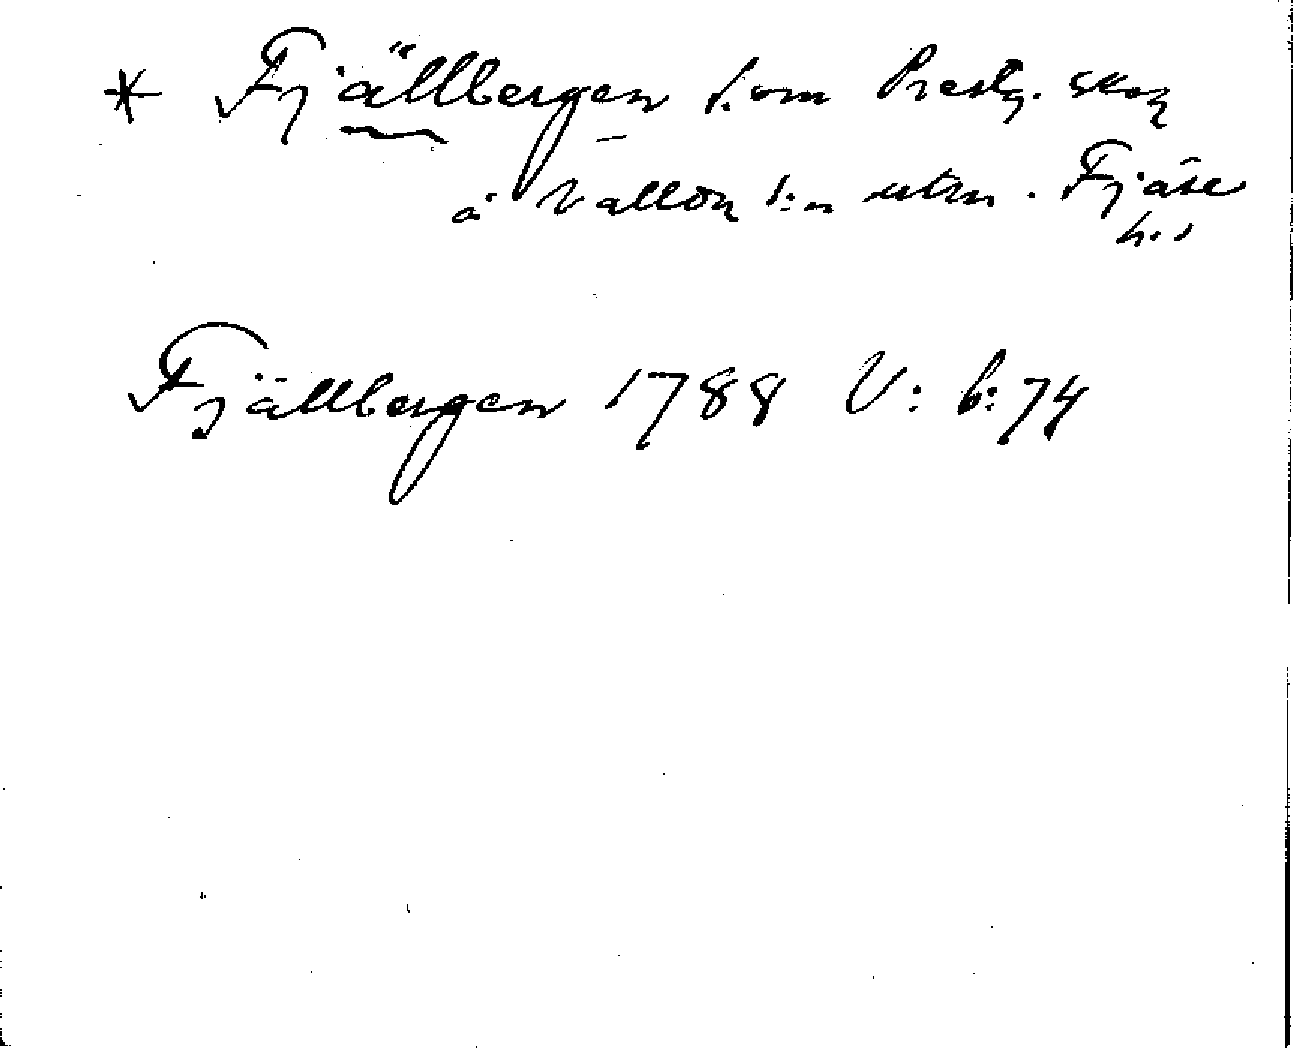 * Fjällbergen f. om Prestg. skog
å Vallön l:n utm. Fjäre
h.
Fjällbergen 1788 V: 6:74